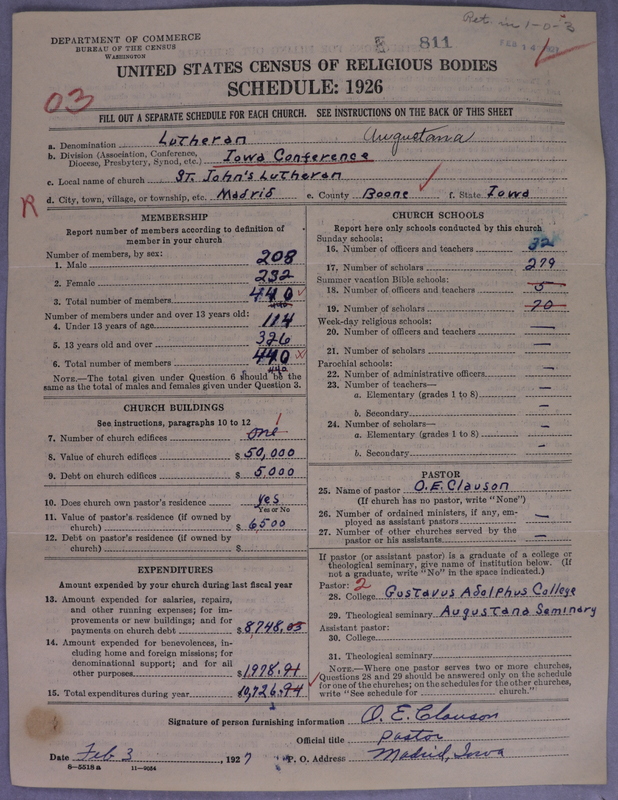 Ret. in 1-0-3
DEPARTMENT OF COMMERCE
BUREAU OF THE CENSUS
WASHINGTON
811
UNITED STATES CENSUS OF RELIGIOUS BODIES
SCHEDULE: 1926
03
FILL OUT A SEPARATE SCHEDULE FOR EACH CHURCH. SEE INSTRUCTIONS ON THE BACK OF THIS SHEET
a. Denomination Lutheran Augustana
b. Division (Association, Conference, Diocese, Presbytery, Synod, etc.) Iowa Conference
c. Local name of church St. John's Lutheran
R
d. City, town, village, or township, etc. Madrid e. County Boone f. State Iowa
MEMBERSHIP
Report number of members according to definition of
member in your church
Number of members, by sex:
1. Male 208
2. Female 232
3. Total number of members 440
440
Number of members under and over 13 years old:
4. Under 13 years of age 114
5. 13 years old and over 326
6. Total number of members 440
440
NOTE.—The total given under Question 6 should be the
same as the total of males and females given under Question 3.
CHURCH BUILDINGS
See instructions, paragraphs 10 to 12
1
7. Number of church edifices one
8. Value of church edifices $ 50,000
9. Debt on church edifices $ 5,000
10. Does church own pastor's residence yes
Yes or No
11. Value of pastor's residence (if owned by
church) $ 6,500
12. Debt on pastor's residence (if owned by
church) $
EXPENDITURES
Amount expended by your church during last fiscal year
13. Amount expended for salaries, repairs,
and other running expenses; for im-
provements or new buildings; and for
payments on church debt $ 8748.03
14. Amount expended for benevolences, in-
cluding home and foreign missions; for
denominational support; and for all
other purposes $ 1978.91
15. Total expenditures during year 10,726.94
CHURCH SCHOOLS
Report here only schools conducted by this church
Sunday schools:
16. Number of officers and teachers 32
17. Number of scholars 279
Summer vacation Bible schools:
18. Number of officers and teachers 5
19. Number of scholars 70
Week-day religious schools:
20. Number of officers and teachers —
21. Number of scholars —
Parochial schools:
22. Number of administrative officers —
23. Number of teachers—
a. Elementary (grades 1 to 8) —
b. Secondary —
24. Number of scholars—
a. Elementary (grades 1 to 8) —
b. Secondary —
PASTOR
25. Name of pastor O.E. Clauson
(If church has no pastor, write "None")
26. Number of ordained ministers, if any, em-
ployed as assistant pastors —
27. Number of other churches served by the
pastor or his assistants —
If pastor (or assistant pastor) is a graduate of a college or
theological seminary, give name of institution below. (If
not a graduate, write "No" in the space indicated.)
Pastor: 2
28. College Gustavus Adolphus College
29. Theological seminary Augustana Seminary
Assistant pastor:
30. College
31. Theological seminary
NOTE.—Where one pastor serves two or more churches,
Questions 28 and 29 should be answered only on the schedule
for one of the churches; on the schedules for the other churches,
write "See schedule for church."
Signature of person furnishing information O. E. Clauson
Official title Pastor
Date Feb 3, 1927 P. O. Address Madrid, Iowa
8—5518 a 11—9054